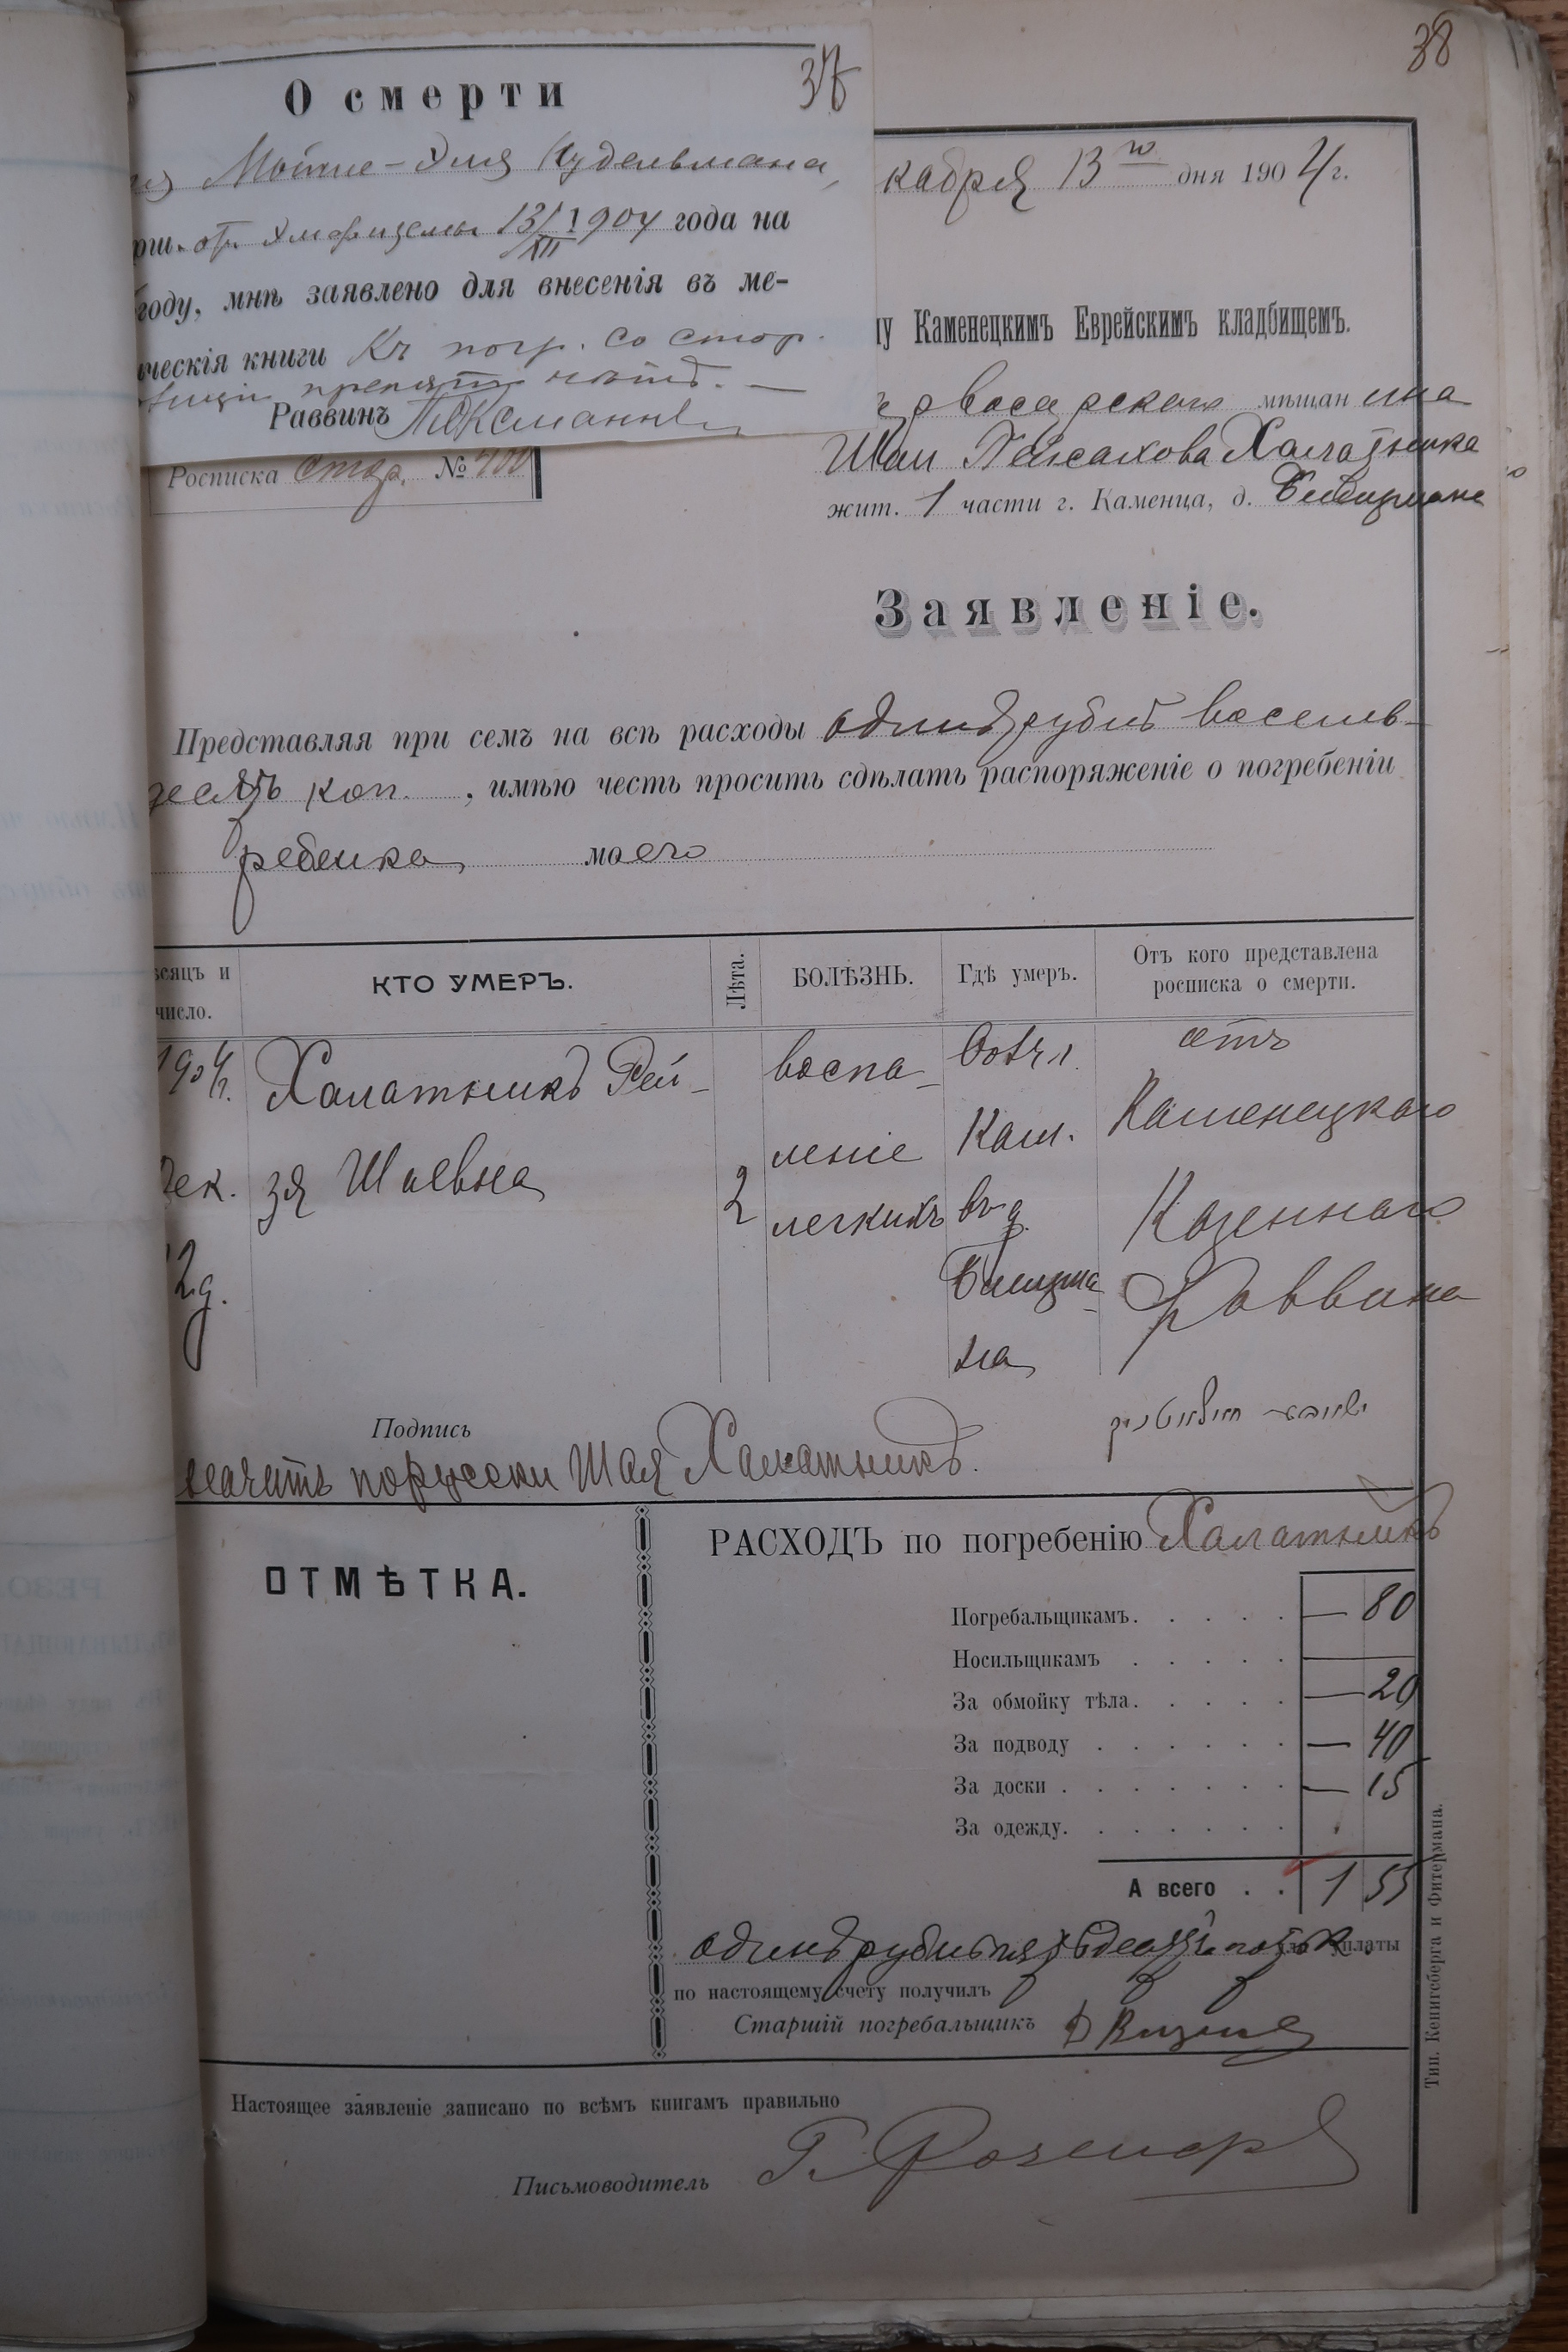 38
О смерти
37
Мотие-Эля Кудельмана,
рш. от эмфиземы 13/XII 1904 года на
году, мнѣ заявлено для внесенія въ ме-
ическія книги Къ погр. со стор.
препят нѣтъ. —
Раввинъ
Росписка стор. № 700
кабря 13 го дня 1904 г.
у Каменецкимъ Еврейскимъ кладбищемъ.
мѣщанина
Шаи Пейсахова Халатника
жит. 1 части г. Каменца, д.
Заявленіе.
Представляя при семъ на всѣ расходы одинъ рубль восемь-
десятъ коп. , имѣю честь просить сдѣлать распоряженіе о погребеніи
ребенка моего
ѣсяцъ и число.
КТО УМЕРЪ.
Лѣта.
БОЛѢЗНЬ.
Гдѣ умеръ.
Отъ кого представлена росписка о смерти.
1904 г. дек. 12 д.
Халатникъ Рей-
зя Шаевна
2
воспа-
леніе
легкихъ
Во 2 ч. г.
Кам.
въ д.
на
отъ
Каменецкаго
Казеннаго
Раввина
Подпись
ישעיה חאלאטניק
значитъ порусски Шая Халатникъ.
ОТМѢТКА.
РАСХОДЪ по погребенію Халатникъ
Погребальщикамъ. . . . . — 80
Носильщикамъ . . . . . —
За обмойку тѣла. . . . . — 20
За подводу . . . . . . — 40
За доски . . . . . . . — 15
За одежду. . . . . . .
А всего . . 1 55
одинъ рубль пятьдесятъ пять к. уплаты
по настоящему счету получилъ
Старшій погребальщикъ
Настоящее заявленіе записано по всѣмъ книгамъ правильно
Письмоводитель Г. Розенбер
Тип. Кенигсберга и Фитермана.